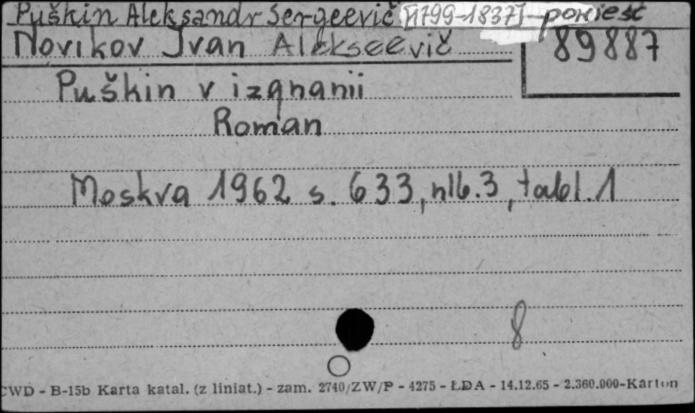 Puškin Aleksandr Sergeevič [1799-1837] - powieść
Novikov Ivan Alekseevič 89887
Puškin v izgnanii
Roman
Moskva 1962 s. 633, nlb. 3, tabl. 1
8
CWD - B-15b Karta katal. (z liniat.) - zam. 2740/ZW/P - 4275 - ŁDA - 14.12.65 - 2.360.000-Karton